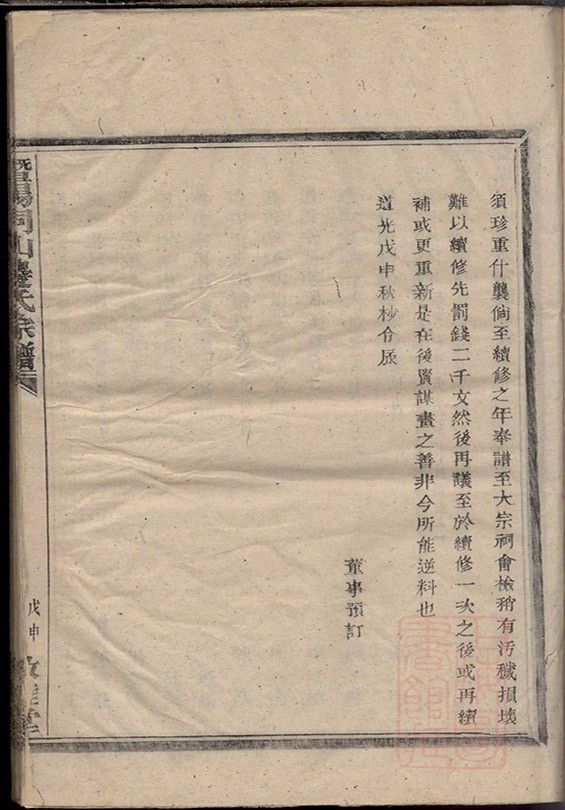 須珍重什襲倘至續修之年奉譜至大宗祠會檢稍有汚穢損壞
難以續修先罰錢二千文然後再議至於續修一次之後或再續
補或更重新是在後賢謀畫之善非今所能逆料也
道光戊申秋杪令辰
董事預訂
暨陽同山邊氏宗譜
戊申